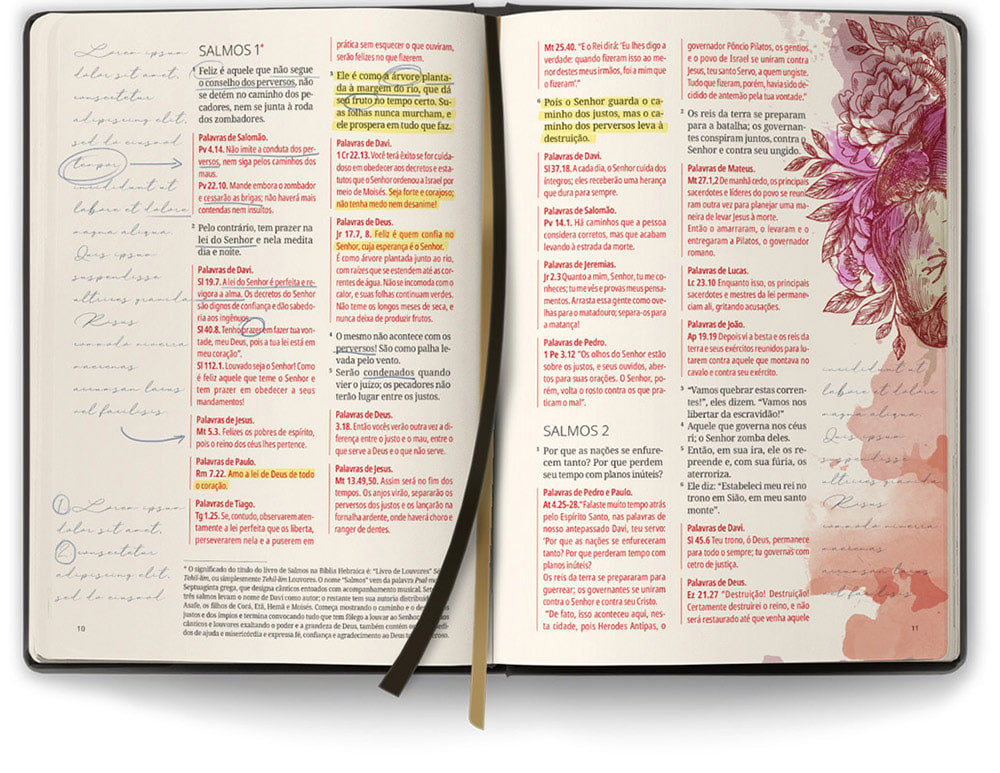 Lorem ipsum
dolor sit amet,
consectetur
adipiscing elit,
sed do eiusmod
tempor
incididunt ut
labore et dolore
magna aliqua.
Quis ipsum
suspendisse
ultrices gravida
Risus
commodo viverra
maecenas
accumsan lacus
vel facilisis.
1 Lorem ipsum
dolor sit amet,
2 consectetur
adipiscing elit,
sed do eiusmod
10
SALMOS 1*
1 Feliz é aquele que não segue
o conselho dos perversos, não
se detém no caminho dos pe-
cadores, nem se junta à roda
dos zombadores.
Palavras de Salomão.
Pv 4.14. Não imite a conduta dos per-
versos, nem siga pelos caminhos dos
maus.
Pv 22.10. Mande embora o zombador
e cessarão as brigas; não haverá mais
contendas nem insultos.
2 Pelo contrário, tem prazer na
lei do Senhor e nela medita
dia e noite.
Palavras de Davi.
Sl 19.7. A lei do Senhor é perfeita e re-
vigora a alma. Os decretos do Senhor
são dignos de confiança e dão sabedo-
ria aos ingênuos.
Sl 40.8. Tenho prazer em fazer tua von-
tade, meu Deus, pois a tua lei está em
meu coração”.
Sl 112.1. Louvado seja o Senhor! Como
é feliz aquele que teme o Senhor e
tem prazer em obedecer a seus
mandamentos!
Palavras de Jesus.
Mt 5.3. Felizes os pobres de espírito,
pois o reino dos céus lhes pertence.
Palavras de Paulo.
Rm 7.22. Amo a lei de Deus de todo
o coração.
Palavras de Tiago.
Tg 1.25. Se, contudo, observarem aten-
tamente a lei perfeita que os liberta,
perseverarem nela e a puserem em
prática sem esquecer o que ouviram,
serão felizes no que fizerem.
3 Ele é como a árvore planta-
da à margem do rio, que dá
seu fruto no tempo certo. Su-
as folhas nunca murcham, e
ele prospera em tudo que faz.
Palavras de Davi.
1 Cr 22.13. Você terá êxito se for cuida-
doso em obedecer aos decretos e esta-
tutos que o Senhor ordenou a Israel por
meio de Moisés. Seja forte e corajoso;
não tenha medo nem desanime!
Palavras de Deus.
Jr 17.7, 8. Feliz é quem confia no
Senhor, cuja esperança é o Senhor.
É como árvore plantada junto ao rio,
com raízes que se estendem até as cor-
rentes de água. Não se incomoda com o
calor, e suas folhas continuam verdes.
Não teme os longos meses de seca, e
nunca deixa de produzir frutos.
4 O mesmo não acontece com os
perversos! São como palha le-
vada pelo vento.
5 Serão condenados quando
vier o juízo; os pecadores não
terão lugar entre os justos.
Palavras de Deus.
3.18. Então vocês verão outra vez a di-
ferença entre o justo e o mau, entre o
que serve a Deus e o que não serve.
Palavras de Jesus.
Mt 13.49,50. Assim será no fim dos
tempos. Os anjos virão, separarão os
perversos dos justos e os lançarão na
fornalha ardente, onde haverá choro e
ranger de dentes.
* O significado do título do livro de Salmos na Bíblia Hebraica é: “Livro de Louvores”
Tehil-lim, ou simplesmente Tehil-lim Louvores. O nome “Salmos” vem da palavra
Septuaginta grega, que designa cânticos entoados com acompanhamento musical.
três salmos levam o nome de Davi como autor; o restante tem sua autoria
Asafe, os filhos de Corá, Etã, Hemã e Moisés. Começa mostrando o caminho e o
justos e dos ímpios e termina convocando tudo que tem fôlego a louvar ao
cânticos e louvores exaltando o poder e a grandeza de Deus, também contém
dos de ajuda e misericórdia e expressa fé, confiança e agradecimento ao Deus
Mt 25.40. “E o Rei dirá: ‘Eu lhes digo a
verdade: quando fizeram isso ao me-
nor destes meus irmãos, foi a mim que
o fizeram’.”
6 Pois o Senhor guarda o ca-
minho dos justos, mas o ca-
minho dos perversos leva à
destruição.
Palavras de Davi.
Sl 37.18. A cada dia, o Senhor cuida dos
íntegros; eles receberão uma herança
que dura para sempre.
Palavras de Salomão.
Pv 14.1. Há caminhos que a pessoa
considera corretos, mas que acabam
levando à estrada da morte.
Palavras de Jeremias.
Jr 2.3 Quanto a mim, Senhor, tu me co-
nheces; tu me vês e provas meus pensa-
mentos. Arrasta essa gente como ove-
lhas para o matadouro; separa-os para
a matança!
Palavras de Pedro.
1 Pe 3.12 “Os olhos do Senhor estão
sobre os justos, e seus ouvidos, aber-
tos para suas orações. O Senhor, po-
rém, volta o rosto contra os que pra-
ticam o mal”.
SALMOS 2
1 Por que as nações se enfure-
cem tanto? Por que perdem
seu tempo com planos inúteis?
Palavras de Pedro e Paulo.
At 4.25–28. “Falaste muito tempo atrás
pelo Espírito Santo, nas palavras de
nosso antepassado Davi, teu servo:
‘Por que as nações se enfureceram
tanto? Por que perderam tempo com
planos inúteis?
Os reis da terra se prepararam para
guerrear; os governantes se uniram
contra o Senhor e contra seu Cristo.
“De fato, isso aconteceu aqui, nes-
ta cidade, pois Herodes Antipas, o
governador Pôncio Pilatos, os gentios
e o povo de Israel se uniram contra
Jesus, teu santo Servo, a quem ungiste.
Tudo que fizeram, porém, havia sido de-
cidido de antemão pela tua vontade.”
2 Os reis da terra se preparam
para a batalha; os governan-
tes conspiram juntos, contra o
Senhor e contra seu ungido.
Palavras de Mateus.
Mt 27.1,2 De manhã cedo, os principais
sacerdotes e líderes do povo se reuni-
ram outra vez para planejar uma ma-
neira de levar Jesus à morte.
Então o amarraram, o levaram e o
entregaram a Pilatos, o governador
romano.
Palavras de Lucas.
Lc 23.10 Enquanto isso, os principais
sacerdotes e mestres da lei permane-
ciam ali, gritando acusações.
Palavras de João.
Ap 19.19 Depois vi a besta e os reis da
terra e seus exércitos reunidos para lu-
tarem contra aquele que montava no
cavalo e contra seu exército.
3 “Vamos quebrar estas corren-
tes!”, eles dizem. “Vamos nos
libertar da escravidão!”
4 Aquele que governa nos céus
ri; o Senhor zomba deles.
5 Então, em sua ira, ele os re-
preende e, com sua fúria, os
aterroriza.
6 Ele diz: “Estabeleci meu rei no
trono em Sião, em meu santo
monte”.
Palavras de Davi.
Sl 45.6 Teu trono, ó Deus, permanece
para todo o sempre; tu governas com
cetro de justiça.
Palavras de Deus.
Ez 21.27 “Destruição! Destruição!
Certamente destruirei o reino, e não
será restaurado até que venha aquele
incididunt ut
labore et dolore
magna aliqua.
Quis ipsum
suspendisse
ultrices gravida
Risus
commodo viverra
maecenas
accumsan lacus
vel facilisis.
11